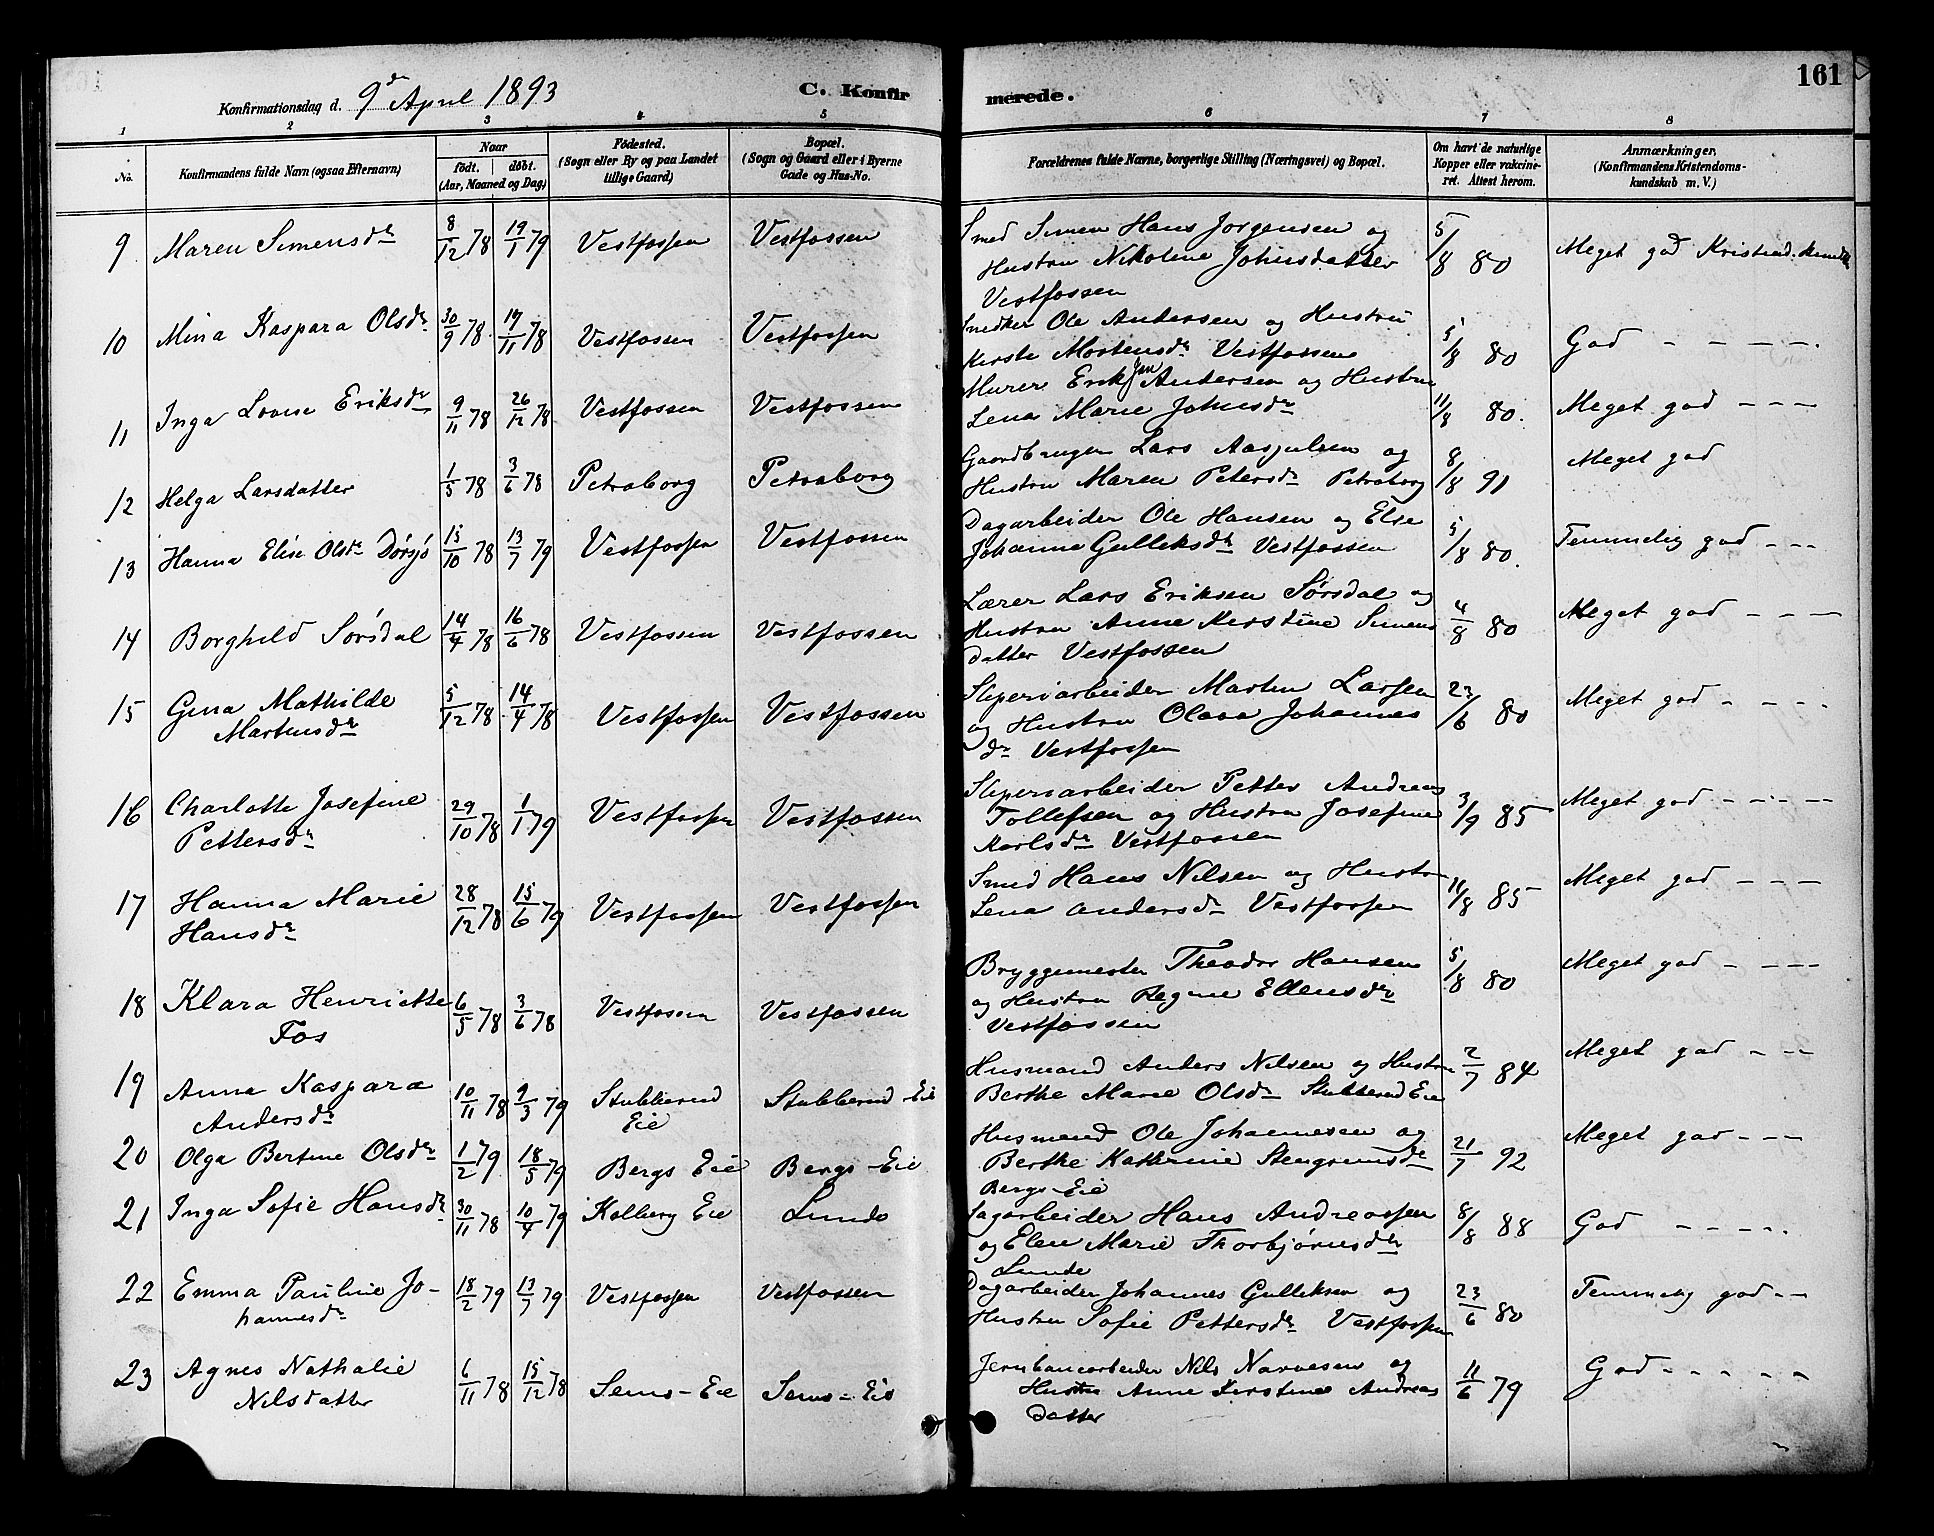 161
Konfirmationsdag d. 9de April 1893
C. Konfirmerede.
1 2 3 4 5 6 7 8
No.
Konfirmandens fulde Navn (ogsaa Efternavn)
Naar
født. døbt.
(Aar, Maaned og Dag)
Fødested.
(Sogn eller By og paa Landet
tillige Gaard)
Bopæl.
(Sogn og Gaard eller i Byerne
Gade og Hus-No.
Forældrenes fulde Navne, borgerlige Stilling (Næringsvei) og Bopæl.
Om havt de naturlige
Kopper eller vaccine-
ret. Attest herom.
Anmærkninger,
(Konfirmandens Kristendoms-
kundskab m. V.)
9 Maren Simensdr 8/12 78 19/1 79 Vestfossen Vestfossen Smed Simen Hans Jorgensen og
Hustru Nikoline Johnsdatter 5/8 80 Meget god Kristend. kundsk
Vestfossen
10 Mina Kaspara Olsdr 30/9 78 17/11 78 Vestfossen Vestfossen Snedker Ole Andersen og Hustru
Kirste Mortensdr Vestfossen 5/8 80 God - - - -.
11 Inga Lovise Eriksdr 9/11 78 26/12 78 Vestfossen Vestfossen Murer Erik Jan Andersen og Hustru
Lena Marie Johnsdr 11/8 80. Meget god - - -
12 Helga Larsdatter 1/5 78 3/6 78 Petraborg Petraborg Gaardbruger Lars Aaspulsen og
Hustru Maren Petersdr Petraborg 8/8 91 Meget god
13 Hanna Elise Olsdr Dørsjø 15/10 78 13/7 79 Vestfossen Vestfossen Dagarbeider Ole Hansen og Else
Johanne Gulleksdr Vestfossen 5/8 80. Temmelig god - - -
14 Borghild Sørsdal 14/4 78 16/6 78 Vestfossen Vestfossen Lærer Lars Eriksen Sørsdal og
Hustru Anne Kerstine Simens 4/8 80 Meget god - - -
datter Vestfossen
15 Gina Mathilde 5/12 78 14/4 78 Vestfossen Vestfossen Sliperiarbeider Martin Larsen
Martinsdr og Hustru Olava Johannes 23/6 80 Meget god - - - -
dr Vestfossen
16 Charlotte Josefine 29/10 78 1/1 79 Vestfossen Vestfossen Sliperiarbeider Petter Andreas
Pettersdr Tollefsen og Hustru Josefine 3/9 85 Meget god - - - -
Karlsdr Vestfossen
17 Hanna Marie 28/12 78 15/6 79 Vestfossen Vestfossen Smed Hans Nilsen og Hustru
Hansdr Lena Andersdr Vestfossen 11/8 85 Meget god - - -
18 Klara Henriette 6/5 78 3/6 78 Vestfossen Vestfossen Bryggemester Theodor Hansen
Fos og Hustru Regine Ellensdr 5/8 80 Meget god - - - -
Vestfossen
19 Anna Kaspara 10/11 78 9/3 79 Stubberud Stubberud-Eie Husmand Anders Nilsen og Hustru
Andersdr Eie Berthe Marie Olsdr Stubberud Eie 2/7 84 Meget god - - -
20 Olga Bertine Olsdr 1/2 79 18/5 79 Bergs Eie Bergs-Eie Husmand Ole Johannesen og
Berthe Kathrine Stengrimsdr 21/7 92 Meget god - - -
Bergs-Eie
21 Inga Sofie Hansdr 30/11 78 10/4 79 Kolberg Eie Lunde Sagarbeider Hans Andreassen
og Elen Marie Thorbjørnsdr 8/8 88 God - - - -.
Lunde
22 Emma Pauline Jo- 18/2 79 13/7 79 Vestfossen Vestfossen Dagarbeider Johannes Gulleksen og
hannesdr Hustru Sofie Pettersdr Vestfossen 23/6 80 Temmelig god - -
23 Agnes Nathalie 6/11 78 15/12 78 Sems-Eie Sems-Eie Jernbanearbeider Nils Narvesen og
Nilsdatter Hustru Anne Kerstine Andreas 11/6 79 God - - - - -
datter